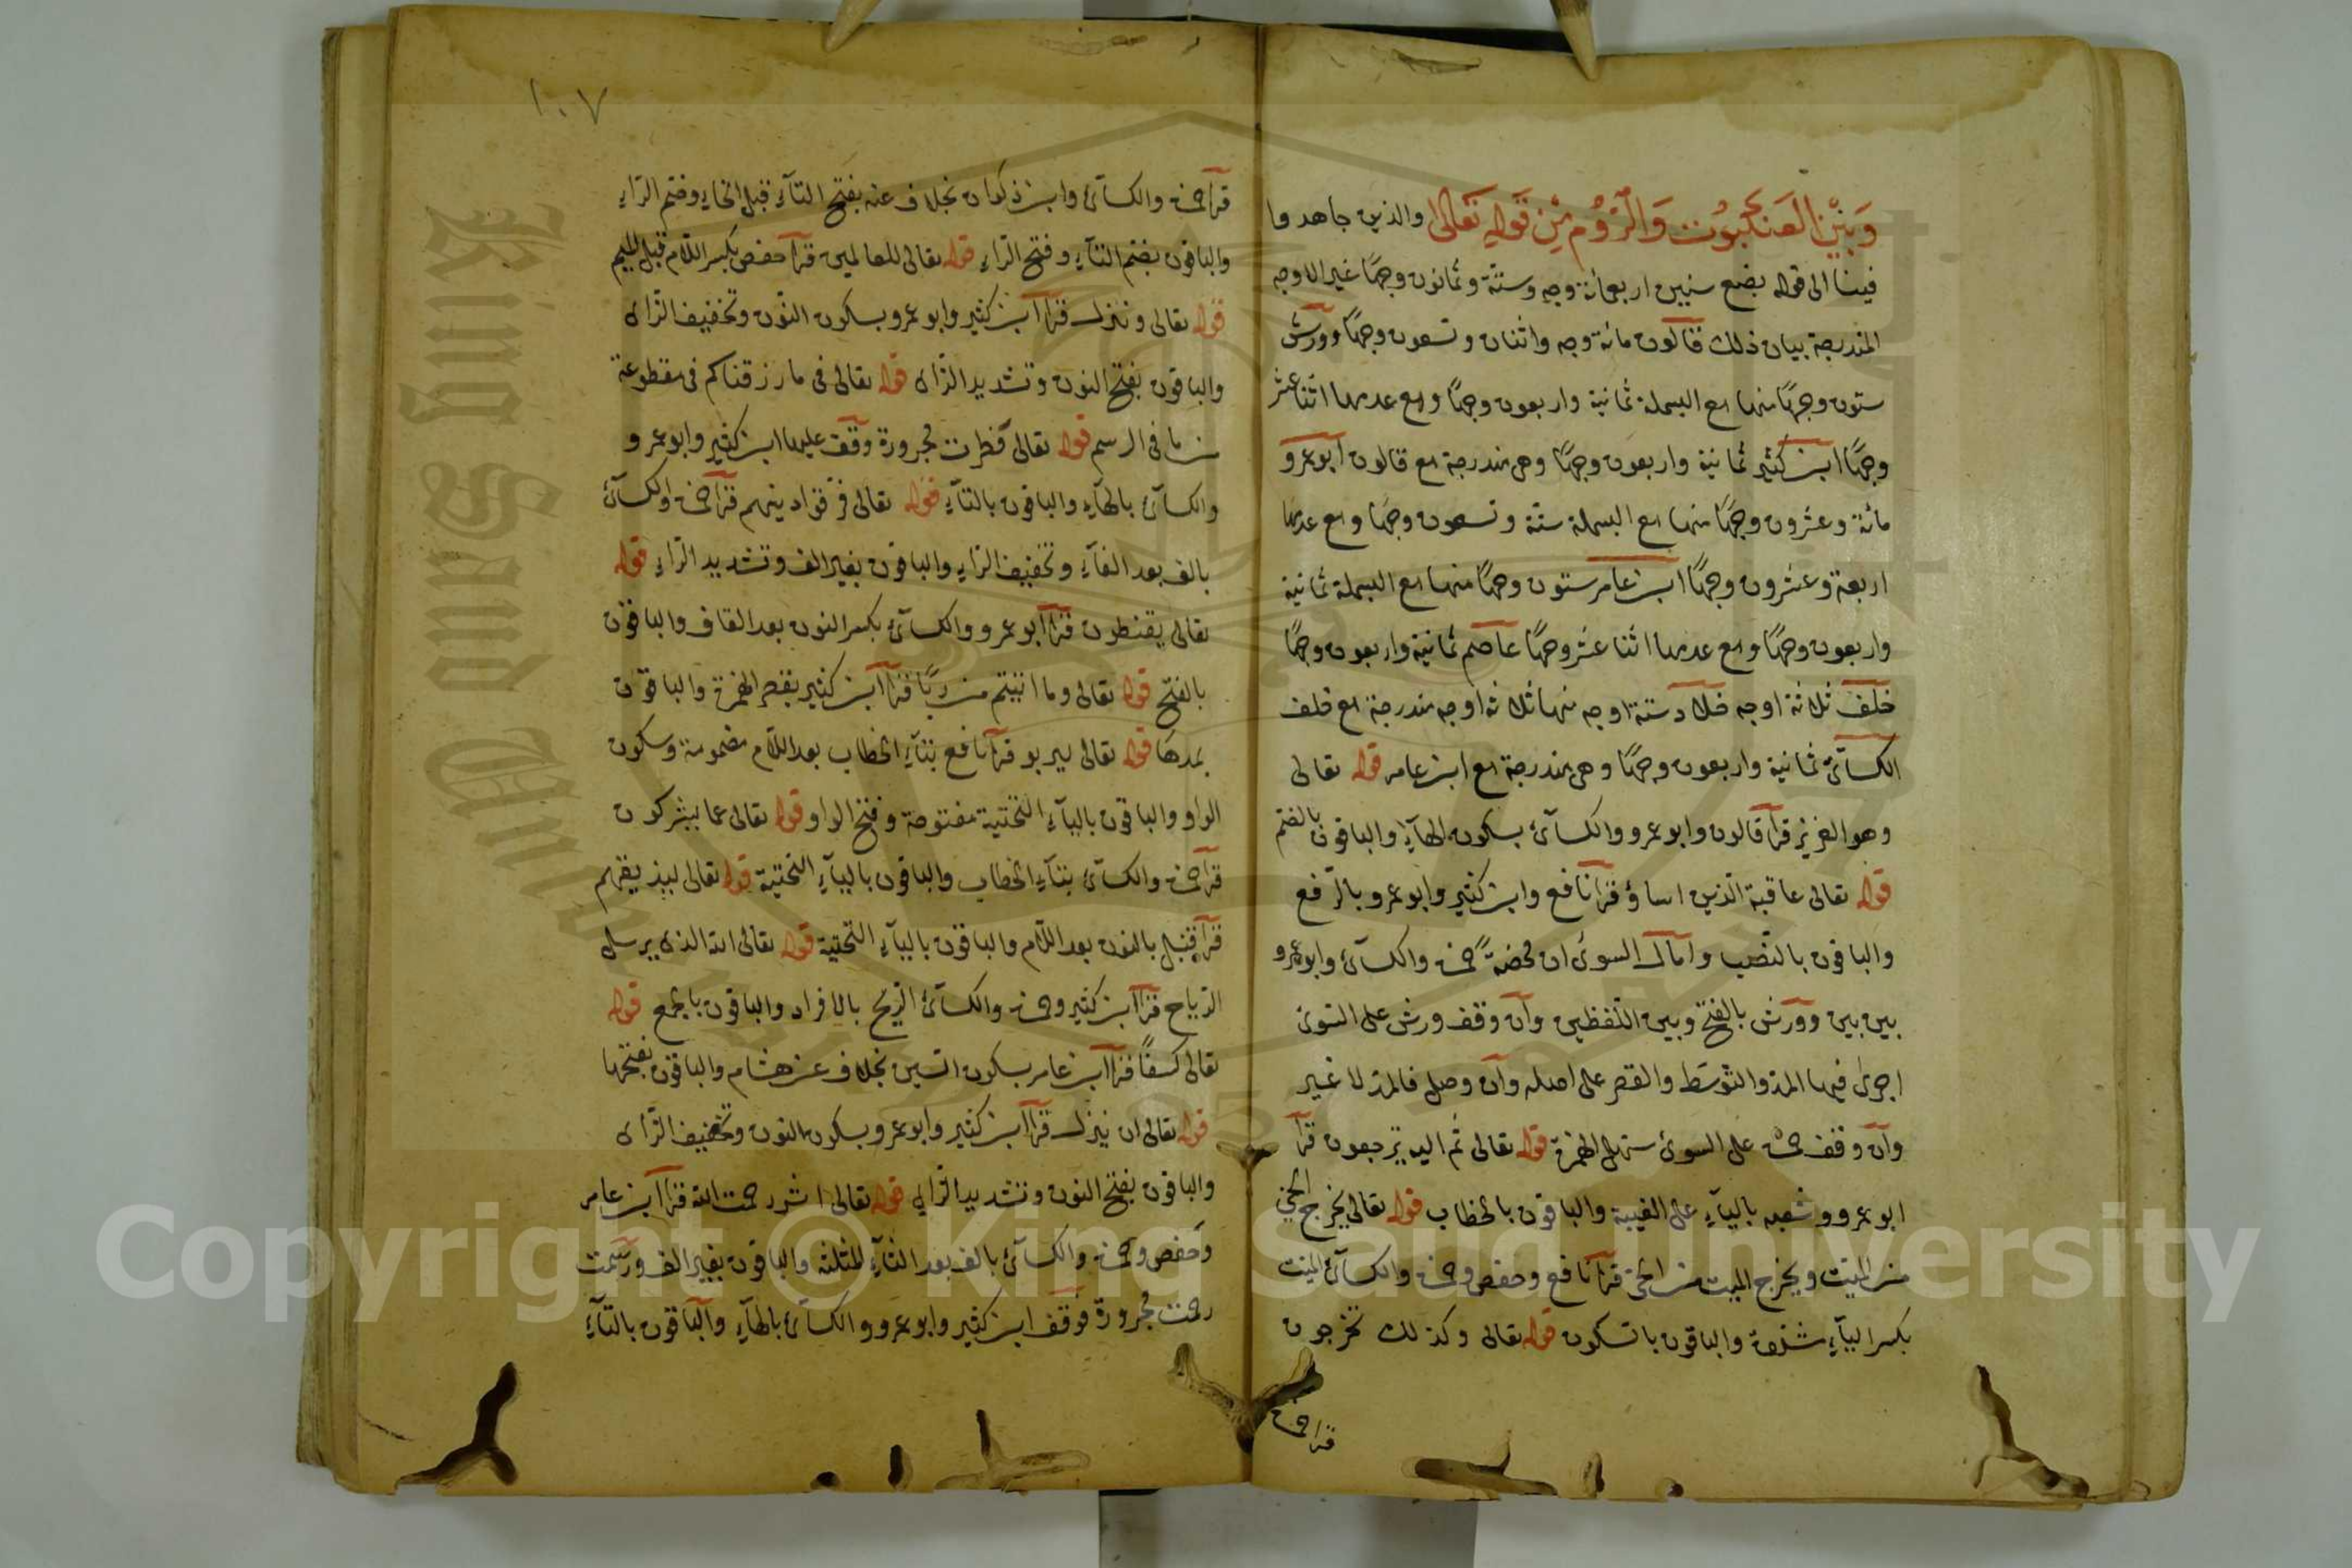 وَبَيْنَ العَنكَبُوت وَالرُّوم مِن قَولِهِ تَعَالى والذين جاهدوا
فينا الى قوله بضع سنين اربعمائة وجه وستة وثمانون وجهًا غير الاوجه
المندرجة بيان ذلك قالون مائة وجه واثنان وتسعون وجهًا وورش
ستون وجهًا منها مع البسملة ثمانية واربعون وجهًا ومع عدمها اثنا عشر
وجهًا ابن كثير ثمانية واربعون وجهًا وهى مندرجة مع قالون ابو عمرو
مائة وعشرون وجهًا منها مع البسملة ستة وتسعون وجهًا ومع عدمها
اربعة وعشرون وجهًا ابن عامر ستون وجهًا منها مع البسملة ثمانية
واربعون وجهًا ومع عدمها اثنا عشر وجهًا عاصم ثمانية واربعون وجهًا
خلف ثلاثة اوجه خلاد ستة اوجه منها ثلاثة اوجه مندرجة مع خلف
الكسآئ ثمانية واربعون وجهًا وهى مندرجة مع ابن عامر قوله تعالى
وهو العزيز قرآ قالون وابو عمرو والكسآئ بسكون الهآءِ والباقون بالضم
قوله تعالى عاقبة الذين اساؤ قرآ نافع وابن كثير وابو عمرو بالرّفع
والباقون بالنّصب وامال السوئ ان محضةً حمزة والكسآئ وابو عمرو
بين بين وورش بالفتح وبين اللّفظين وان وقف ورش على السّوئ
اجرى فيها المدّ والتوسّط والقصر على اصله وان وصل فالمدّ لا غير
وان وقف حمزة على السوئ سهل الهمزة قوله تعالى ثم اليه ترجعون قرآ
ابو عمرو وشعبه باليآءِ على الغيبة والباقون بالخطاب قوله تعالى يخرج الحيّ
من الميّت ويخرج الميت من الحىّ قرآ نافع وحفص وحمزة والكسآئ الميّت
بكسر اليآءِ مشدّدة والباقون بالسّكون قوله تعالى وكذلك تخرجون
قرا حمزة
١٠٧
قرآ حمزة والكسآئ وابن ذكوان بخلاف عنه بفتح التآءِ قبل الخاءِ وضم الرّاءِ
والباقون بضم التآءِ وفتح الرّاءِ قوله تعالى للعالمين قرآ حفص بكسر اللّام قبل الميم
قوله تعالى وننزل قرآ ابن كثير وابو عمرو بسكون النّون وتخفيف الزّاى
والباقون بفتح النون وتشديد الزّاى قوله تعالى فى ما رزقناكم فى مقطوعة
من ما فى الرسم قوله تعالى فطرت مجرورة وقف عليها ابن كثير وابو عمرو
والكسآئ بالهآءِ والباقون بالتآءِ قوله تعالى فرّقوا دينهم قرآ حمزة والكسآئ
بالف بعد الفآءِ وتخفيف الرّاءِ والباقون بغير الف وتشديد الرّاءِ قوله
تعالى يقنطون قرآ ابو عمرو والكسآئ بكسر النون بعد القاف والباقون
بالفتح قوله تعالى وما اتيتم من ربًا قرآ ابن كثير بقصر الهمزة والباقون
بمدها قوله تعالى ليربو قرآ نافع بتآءِ الخطاب بعد اللّام مضمومة وسكون
الواو والباقون باليآءِ التّحتية مفتوحة وفتح الواو قوله تعالى عما يشركون
قرآ حمزة والكسآئ بتآءِ الخطاب والباقون باليآءِ التّحتية قوله تعالى ليذيقهم
قرآ قنبل بالنون بعد اللّام والباقون باليآءِ التّحتية قوله تعالى الله الذى يرسل
الرّياح قرآ ابن كثير وحمزة والكسآئ الرّيح بالافراد والباقون بالجمع قوله
تعالى كسفًا قرآ ابن عامر بسكون السّين بخلاف عن هشام والباقون بفتحها
قوله تعالى ان ينزل قرآ ابن كثير وابو عمرو بسكون النون وتخفيف الزّاى
والباقون بفتح النون وتشديد الزّاىِ قوله تعالى اثر رحمت الله قرآ ابن عامر
وحفص وحمزة والكسآئ بالف بعد الثآءِ المثلثة والباقون بغير الف ورسمت
رحمت مجرورة فوقف ابن كثير وابو عمرو والكسآئ بالهآءِ والباقون بالتآءِ
Copyright © King Saud University